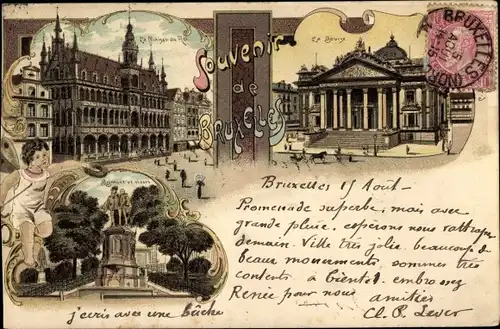 La Maison du Roi
Souvenir
de
BRUXELLES
La Bourse
BRUXELLES
(NORD)
Bruxelles 15 Août -
Promenade superbe, mais avec
grande pluie, espérons nous rattraper
demain. Ville très jolie, beaucoup de
beaux monuments, sommes très
contents à bientôt embrassez
Renée pour nous amitiés
Cl. P. Lever
j'écris avec une bûche